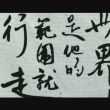 世界
是他的
範圍就
行走